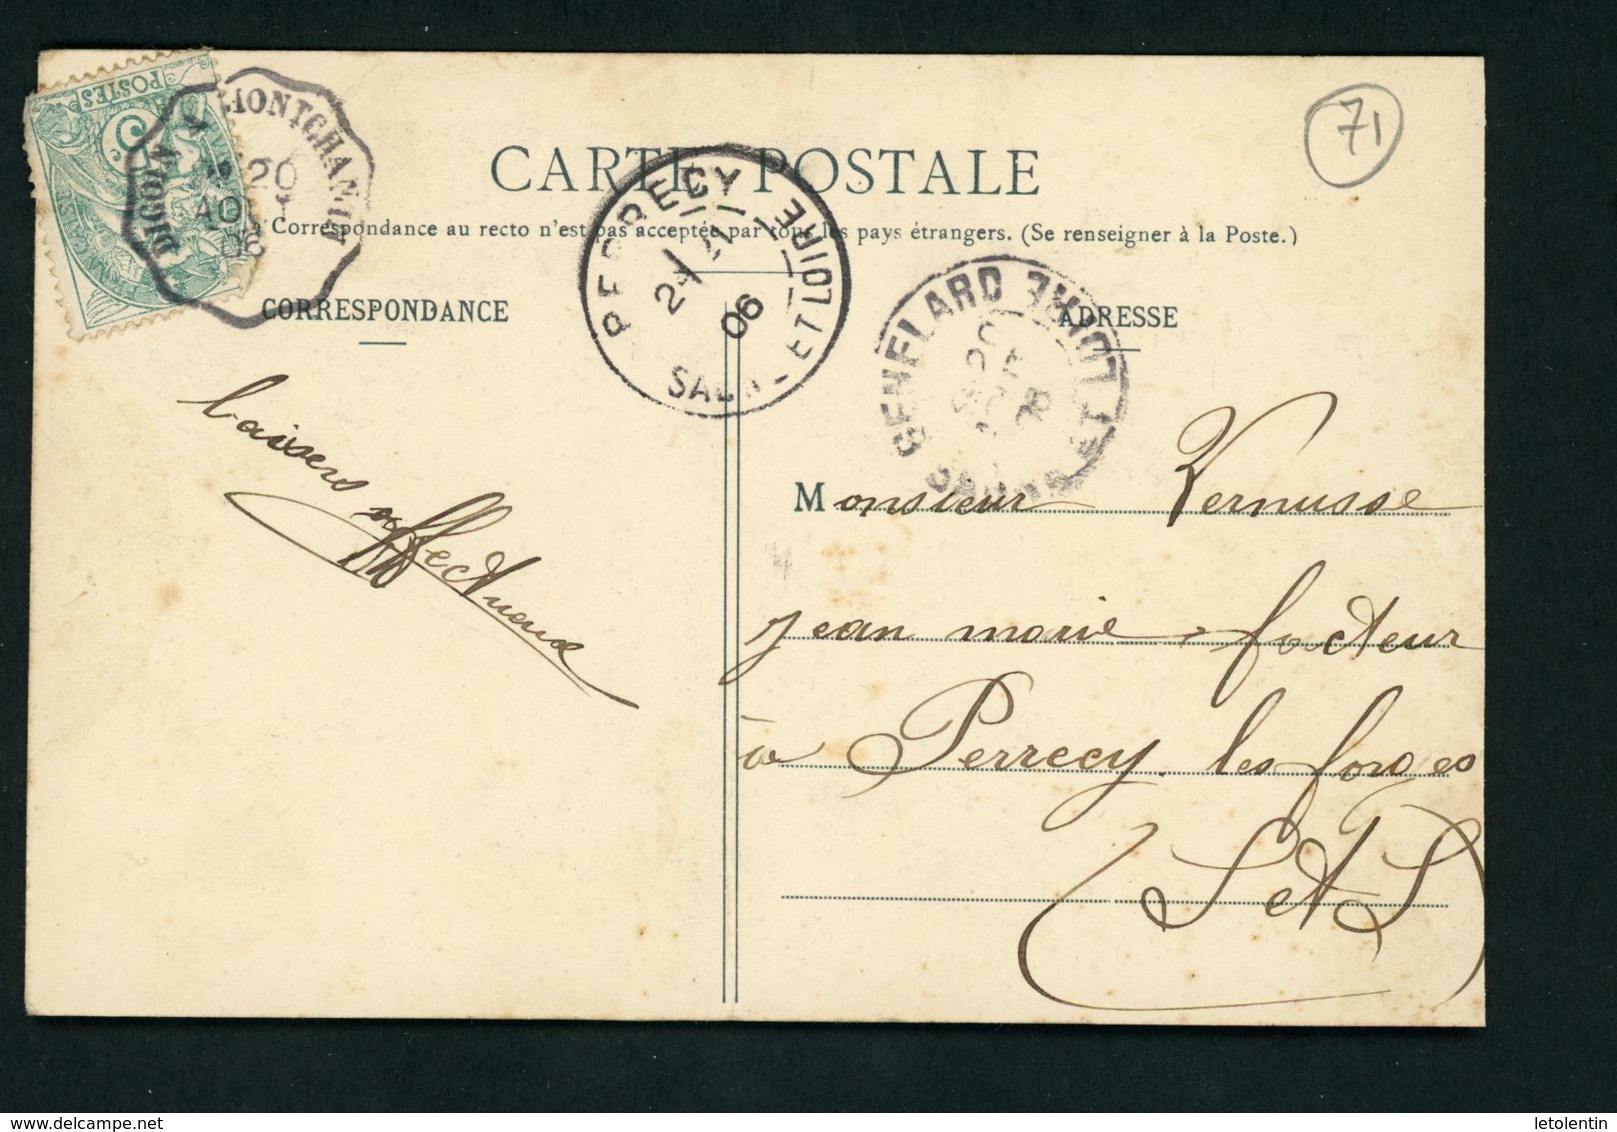 CARTE POSTALE
Correspondance au recto n'est pas acceptée par tous les pays étrangers. (Se renseigner à la Poste.)
CORRESPONDANCE
ADRESSE
POSTES
5
DIGOIN
MONTCHANIN
20
AOUT
06
PERRECY
SAONE-ET-LOIRE
21
06
GENELARD
SAONE ET LOIRE
71
baisers
affectueux
Monsieur Vernusse
jean marie facteur
à Perrecy les forges
S et L
www.delcampe.net
letolentin